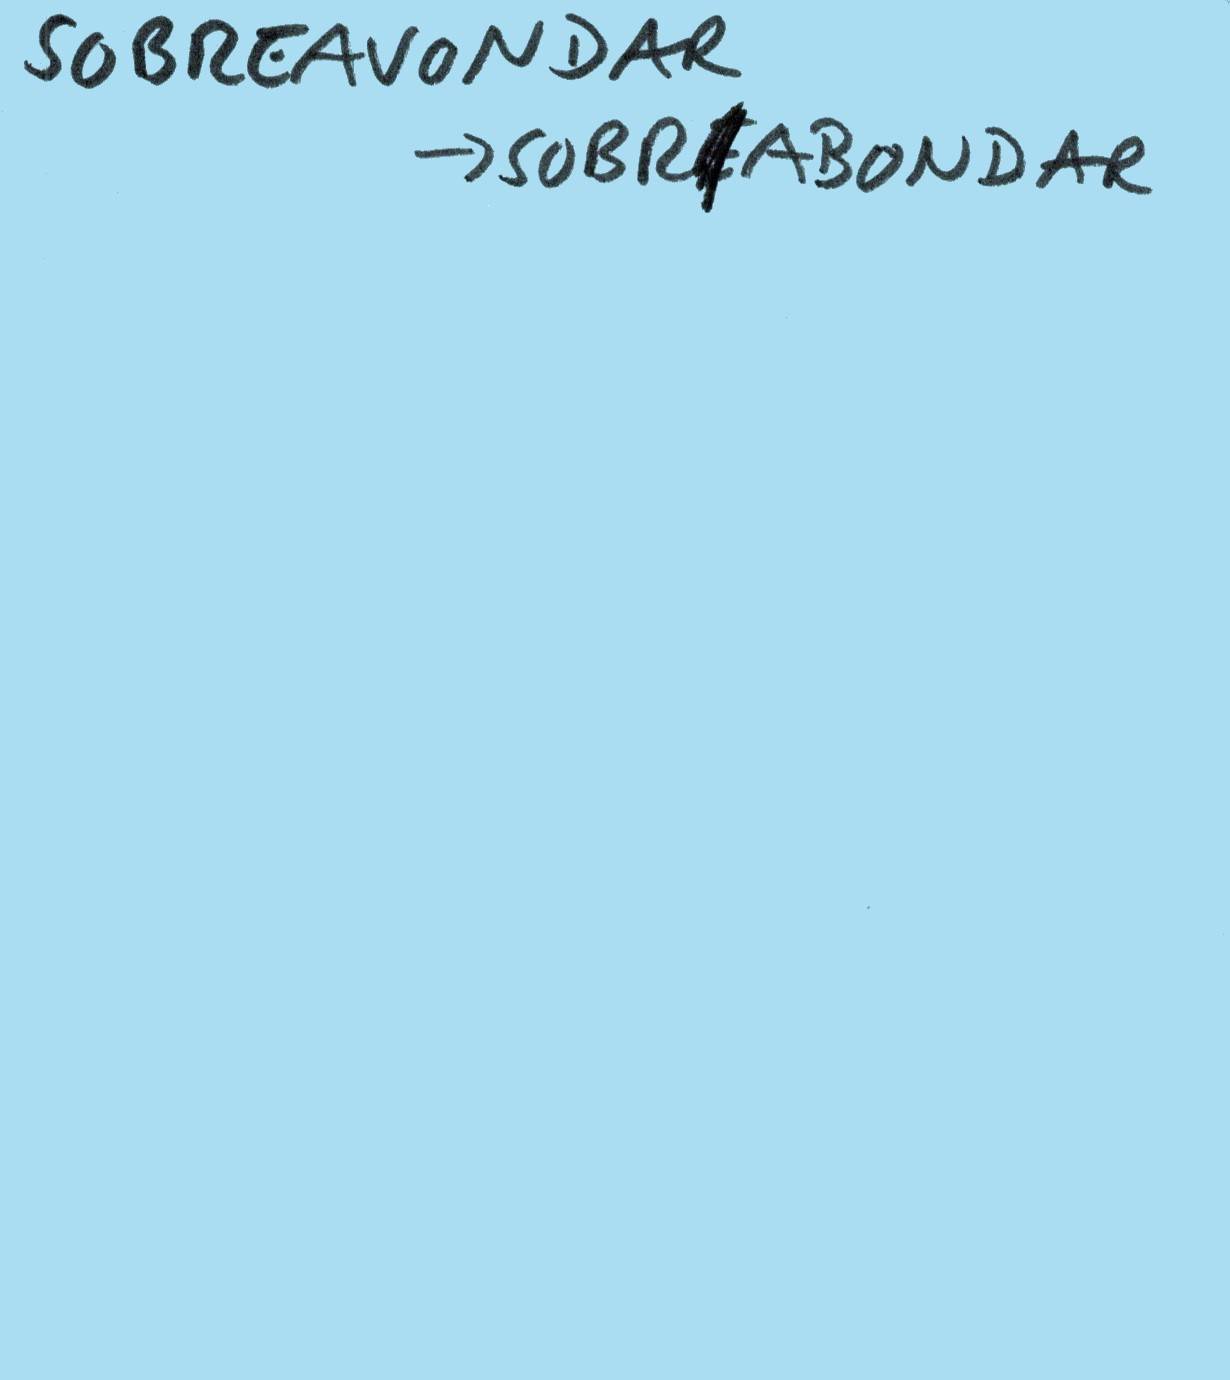 SOBREAVONDAR
→SOBRABONDAR